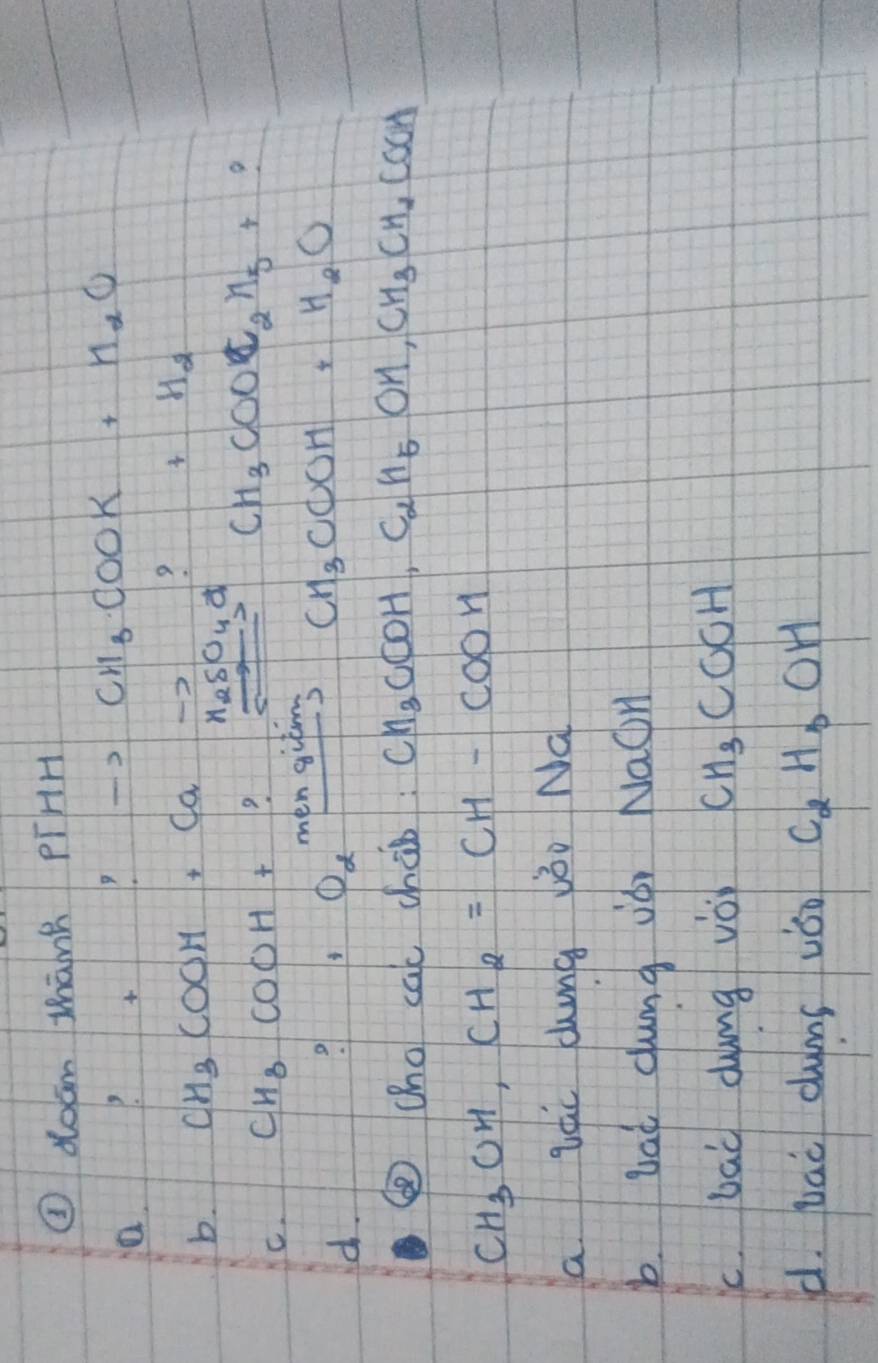 ① Hoàn thành PTHH
a. ? + ? -> CH₃COOK + H₂O
b. CH₃COOH + Ca -> ? + H₂
c. CH₃COOH + ? ⇌ H₂SO₄đ CH₃COOC₂H₅ + ?
d. ? + O₂ men giấm -> CH₃COOH + H₂O
② Cho các chất: CH₃COOH, C₂H₅OH, CH₃CH₂COOH
CH₃OH, CH₂ = CH - COOH
a. tác dụng với Na
b. tác dụng với NaOH
c. tác dụng với CH₃COOH
d. tác dụng với C₂H₅OH